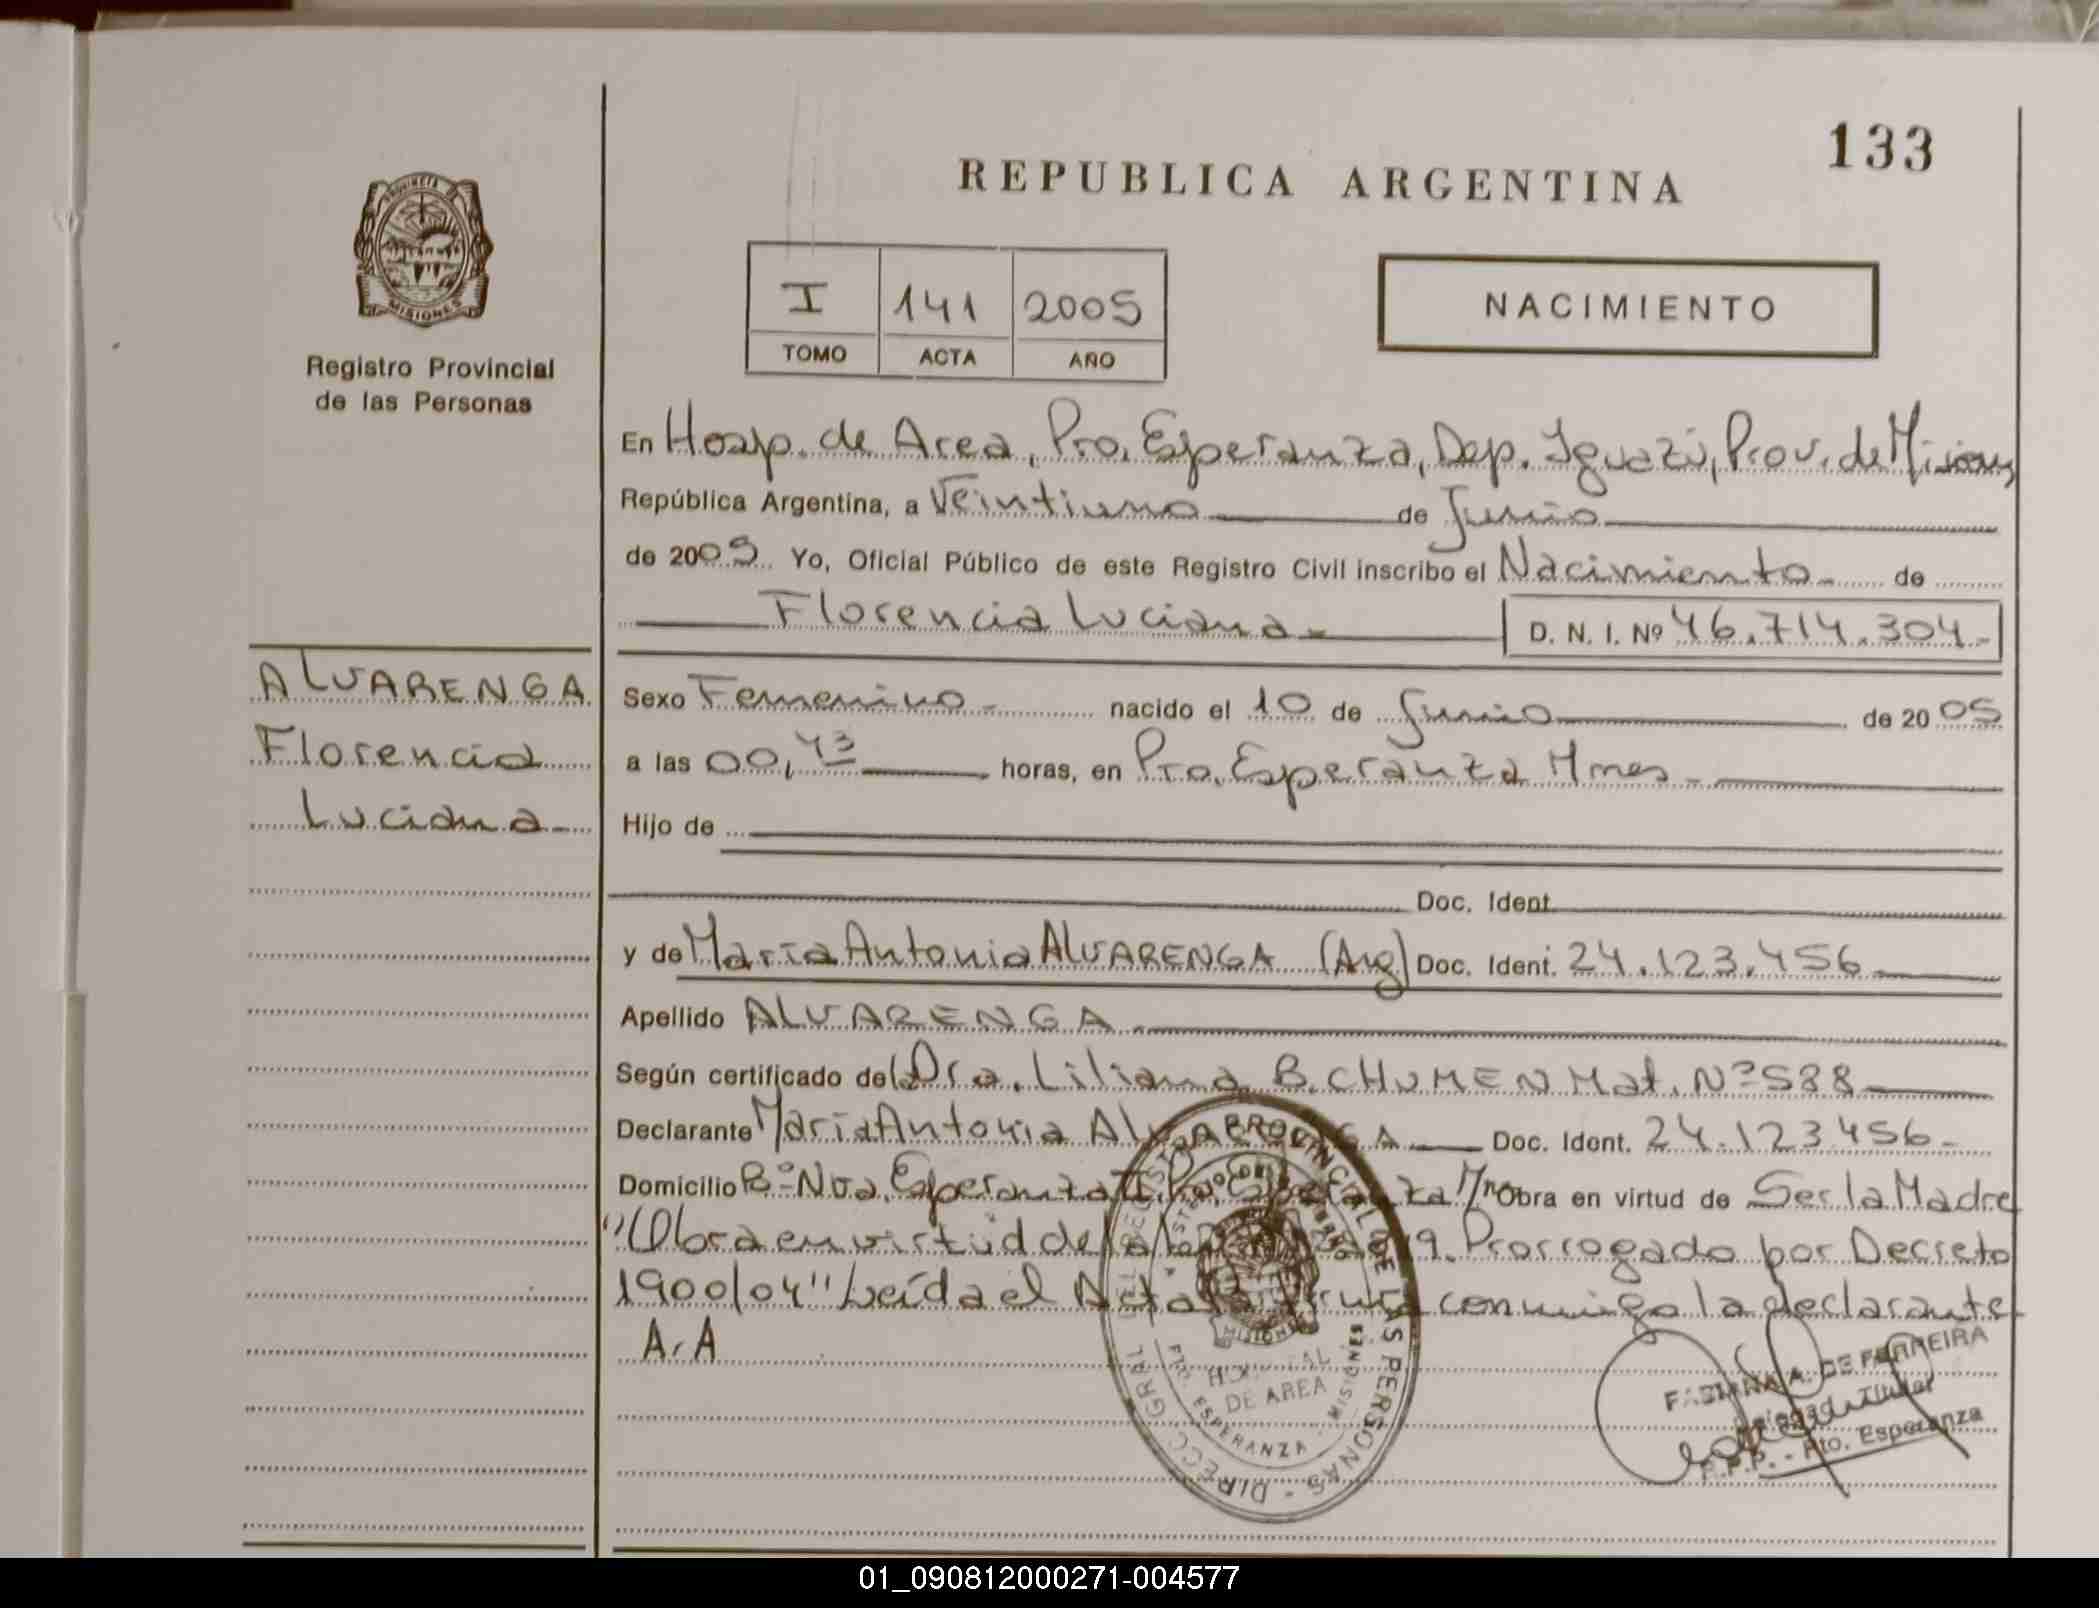 133
REPUBLICA ARGENTINA
PROVINCIA DE
MISIONES
Registro Provincial
de las Personas
I 141 2005
TOMO ACTA AÑO
NACIMIENTO
En Hosp. de Area, Pto. Esperanza, Dep. Iguazú, Prov. de Misiones
República Argentina, a Veintiuno de Junio
de 2005. Yo, Oficial Público de este Registro Civil inscribo el Nacimiento de
Florencia Luciana D. N. I. Nº 46.714.304.-
ALVARENGA
Florencia
Luciana
Sexo Femenino nacido el 10 de Junio de 2005
a las 00,43 horas, en Pto. Esperanza Mnes
Hijo de
Doc. Ident.
y de María Antonia ALVARENGA (Arg) Doc. Ident. 24.123.456
Apellido ALVARENGA
Según certificado de la Dra. Liliana B. CHUMEN Mat. Nº 588
Declarante María Antonia ALVARENGA Doc. Ident. 24.123456
Domicilio Bº Nva. Esperanza Pto. Esperanza Mnes Obra en virtud de Ser la Madre
"Obra en virtud de la 9. Prorrogado por Decreto
1900/04" Leída el Acta la firma conmigo la declarante
A.A
DIRECC. GRAL DEL REGISTRO PROVINCIAL DE LAS PERSONAS
MISIONES
HOSPITAL
DE AREA
PTO. ESPERANZA - MISIONES
FABIANA A. DE FERREIRA
Delegada Titular
R.P.P. - Pto. Esperanza
01_090812000271-004577